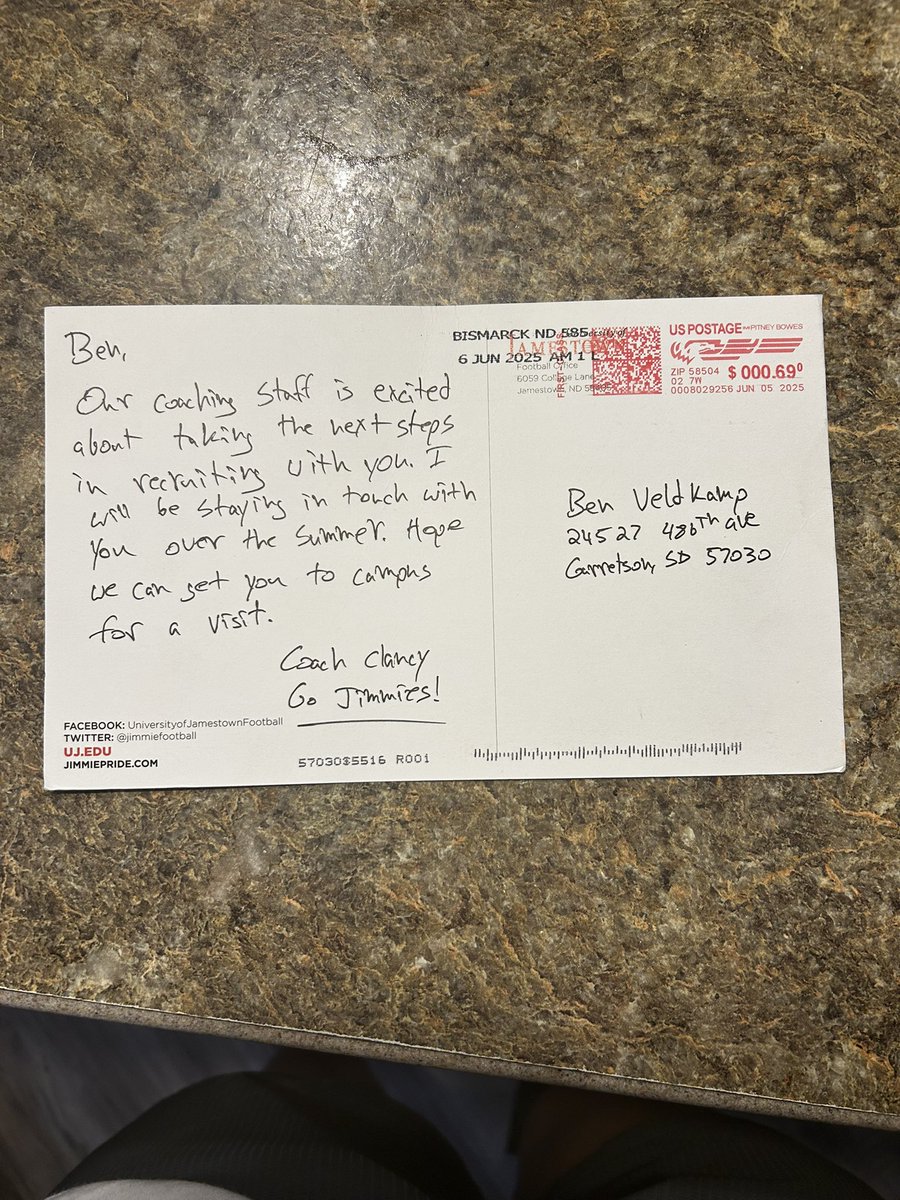 Ben,
Our coaching staff is excited
about taking the next steps
in recruiting with you. I
will be staying in touch with
you over the summer. Hope
we can get you to campus
for a visit.
Coach Clancy
Go Jimmies!
FACEBOOK: UniversityofJamestownFootball
TWITTER: @jimmiefootball
UJ.EDU
JIMMIEPRIDE.COM
57030$5516 R001
BISMARCK ND 585
6 JUN 2025 AM 1 L
University of
JAMESTOWN
Football Office
6059 College Lane
Jamestown, ND
FIRST-CLASS
US POSTAGE PITNEY BOWES
ZIP 58504 $ 000.69⁰
02 7W
0008029256 JUN 05 2025
Ben Veldkamp
24527 486th ave
Garretson, SD 57030